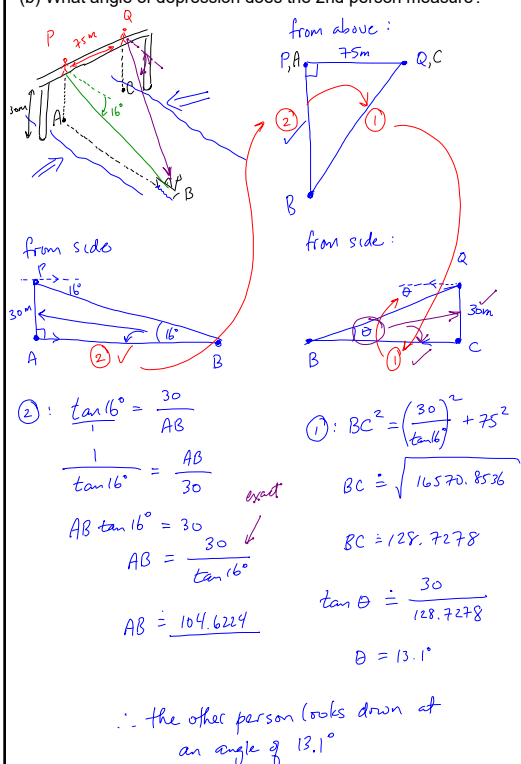 (b) What angle of depression does the 2nd person measure?
P
Q
75m
16°
30m
A
C
B
from above :
P,A
75m
Q,C
②
①
B
from side
P
16°
30m
16°
A
② ✓
B
from side :
Q
θ
θ
30m
B
①
C
② : tan16° = 30/AB
1
1/tan16° = AB/30
AB tan16° = 30
exact
AB = 30/tan16°
AB ≐ 104.6224
① : BC² = (30/tan16°)² + 75²
BC ≐ √16570.8536
BC ≐ 128.7278
tan θ ≐ 30/128.7278
θ = 13.1°
∴ the other person looks down at
an angle of 13.1°